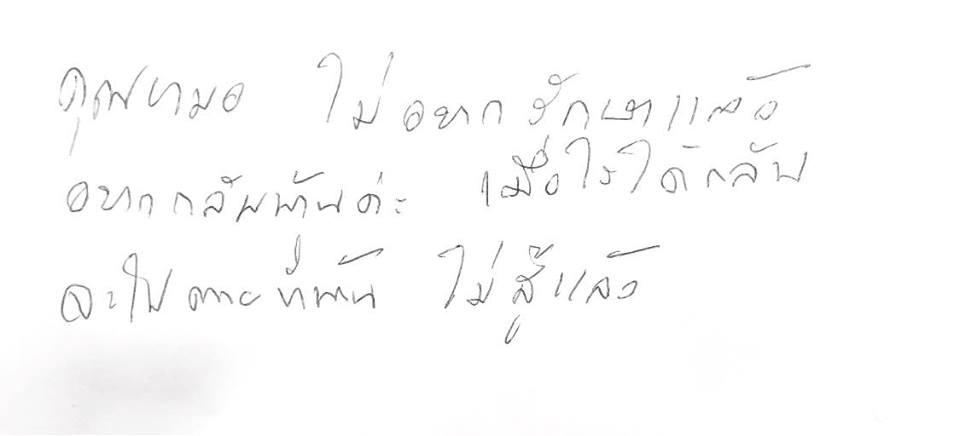 คุณหมอ ไม่อยากรักษาแล้ว
อยากกลับบ้านค่ะ เมื่อไรได้กลับ
จะไปตายที่บ้าน ไม่สู้แล้ว